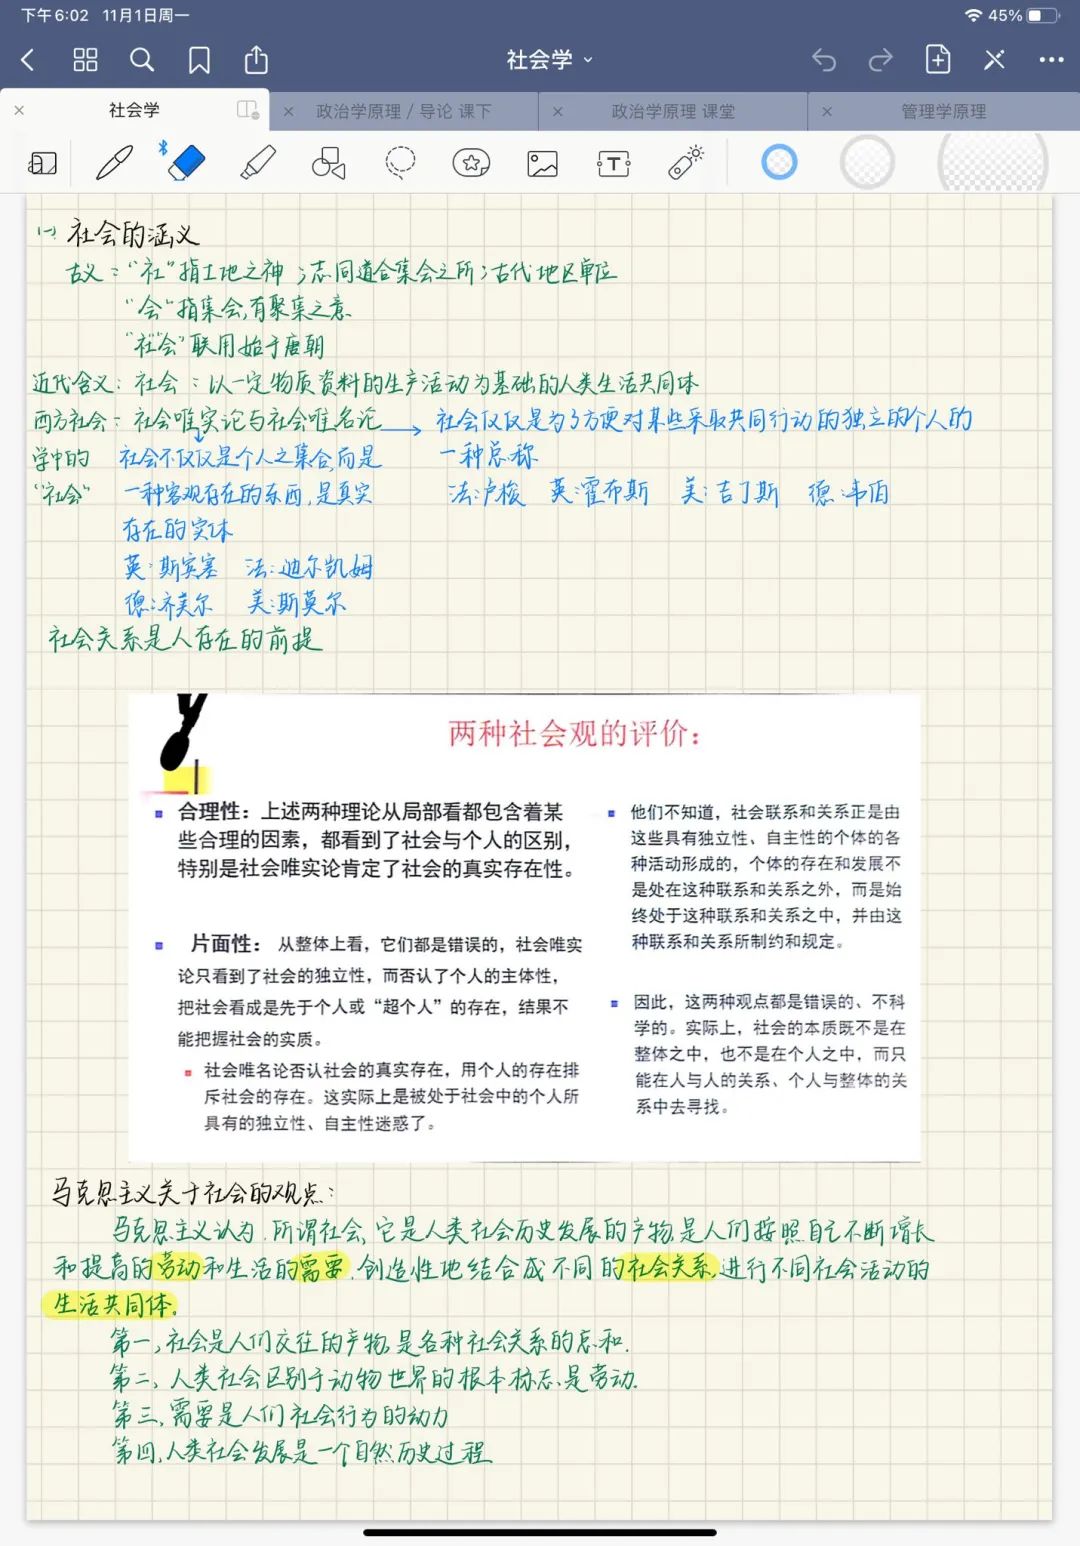 下午6:02 11月1日周一
45%
社会学
社会学
政治学原理 / 导论 课下
政治学原理 课堂
管理学原理
(一) 社会的涵义
古义：“社”指土地之神；志同道合集会之所；古代地区单位
“会”指集会,有聚集之意
“社会”联用始于唐朝
近代含义：社会：以一定物质资料的生产活动为基础的人类生活共同体
西方社会：社会唯实论与社会唯名论 → 社会仅仅是为了方便对某些采取共同行动的独立的个人的
学中的 社会不仅仅是个人之集合,而是 一种总称
“社会” 一种客观存在的东西,是真实 法:卢梭 英:霍布斯 美:吉丁斯 德:韦伯
存在的实体
英:斯宾塞 法:迪尔凯姆
德:齐美尔 美:斯莫尔
社会关系是人存在的前提
两种社会观的评价：
合理性：上述两种理论从局部看都包含着某
些合理的因素，都看到了社会与个人的区别，
特别是社会唯实论肯定了社会的真实存在性。
片面性： 从整体上看，它们都是错误的，社会唯实
论只看到了社会的独立性，而否认了个人的主体性，
把社会看成是先于个人或“超个人”的存在，结果不
能把握社会的实质。
社会唯名论否认社会的真实存在，用个人的存在排
斥社会的存在。这实际上是被处于社会中的个人所
具有的独立性、自主性迷惑了。
他们不知道，社会联系和关系正是由
这些具有独立性、自主性的个体的各
种活动形成的，个体的存在和发展不
是处在这种联系和关系之外，而是始
终处于这种联系和关系之中，并由这
种联系和关系所制约和规定。
因此，这两种观点都是错误的、不科
学的。实际上，社会的本质既不是在
整体之中，也不是在个人之中，而只
能在人与人的关系、个人与整体的关
系中去寻找。
马克思主义关于社会的观点：
马克思主义认为,所谓社会,它是人类社会历史发展的产物,是人们按照自己不断增长
和提高的劳动和生活的需要,创造性地结合成不同的社会关系,进行不同社会活动的
生活共同体。
第一,社会是人们交往的产物,是各种社会关系的总和.
第二,人类社会区别于动物世界的根本标志是劳动.
第三,需要是人们社会行为的动力
第四,人类社会发展是一个自然历史过程